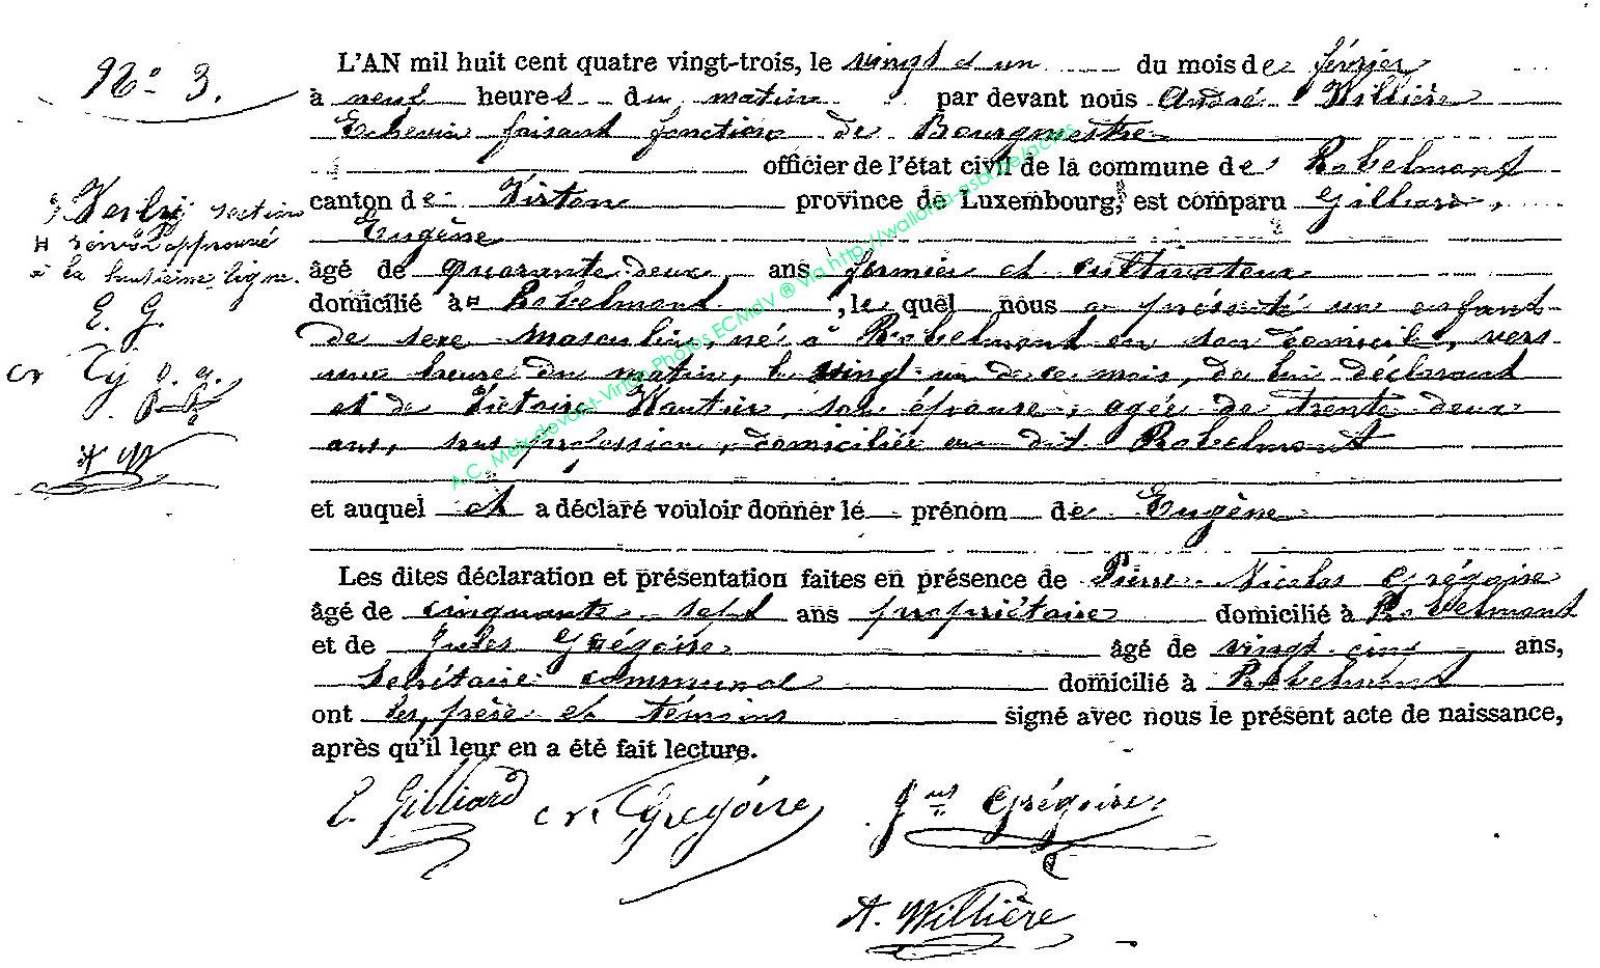 N° 3.
L'AN mil huit cent quatre vingt-trois, le vingt et un du mois de février
à neuf heures du matin par devant nous André Willière
Echevin faisant fonction de Bourgmestre
officier de l'état civil de la commune de Robelmont
canton de Virton province de Luxembourg, est comparu Gilliard,
Eugène
âgé de quarante-deux ans fermier et cultivateur
domicilié à H Robelmont, le quel nous a présenté un enfant
de sexe masculin, né à Robelmont en son domicile, vers
une heure du matin, le vingt-un de ce mois, de lui déclarant
et de Victoire Wautier, son épouse, agée de trente-deux
ans, sans profession, domiciliée au dit Robelmont
et auquel il a déclaré vouloir donner le prénom de Eugène
Les dites déclaration et présentation faites en présence de Pierre Nicolas Grégoire
âgé de cinquante-sept ans propriétaire domicilié à Robelmont
et de Jules Grégoire âgé de vingt-cinq ans,
Secrétaire communal domicilié à Robelmont
ont les, père et témoins signé avec nous le présent acte de naissance,
après qu'il leur en a été fait lecture.
section
H renvoi approuvé
à la huitième ligne.
E. G.
E. Gilliard Grégoire Jules Grégoire
A. Willière
A.C. Meix-devant-Virton Photos ECMdV ® via http://wallonia-asbl.be/actes